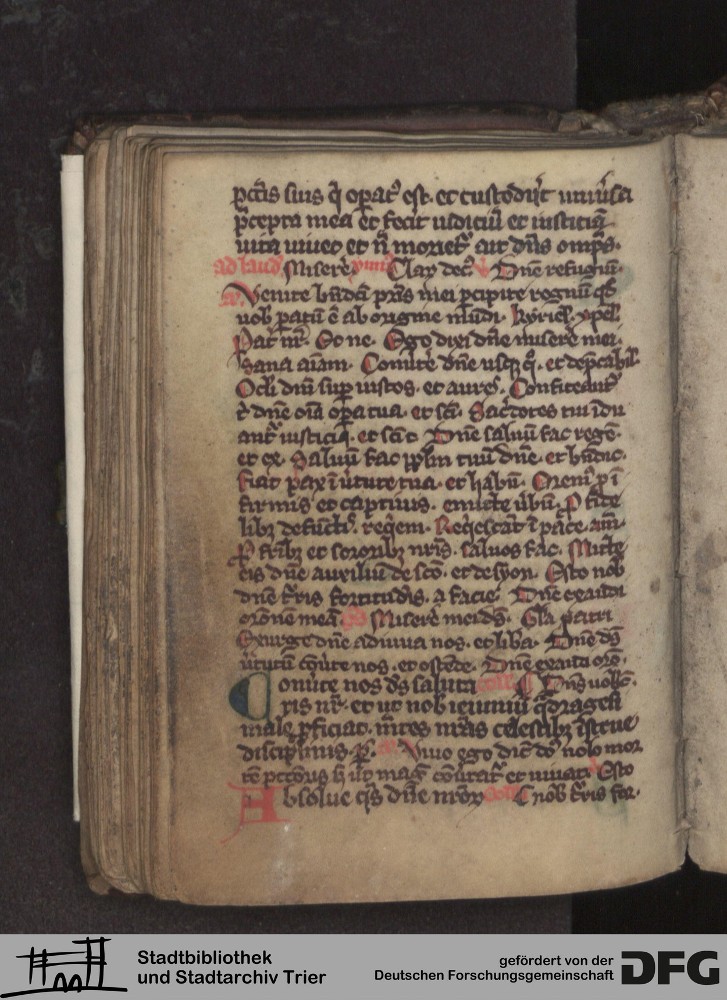 pctis suis q̄ opat᷒ est. et custodiit univsa
p̄cepta mea et fecit iudiciū et iusticiā
vita vivet et n̄ moriet᷑ ait dn̄s omps.
ad laud Miserē Dn̄e refugiū.
Venite bn̄dc̄i pr̄is mei pcipite regnū qđ
vob paratū ē ab origine mūdi. kyriel. xpel.
Pat nr̄. Et ne. Ego dixi dn̄e miserē mei.
Sana aīam. Convte dn̄e usqꝫ q̊. et dep̄cabil.
Ocli dn̄i sup iustos. et aures. Confiteant᷑
t dn̄e oīa opa tua. et sc̄i. Sac̄dotes tui īdu
ant᷑ iusticiā. et sc̄i t. Dn̄e salvū fac regē.
et ex. Salvū fac pp̄lm tuū dn̄e. et bn̄dic.
fiat pax ī v̄tute tua. et habūn. Orem᷒ p ī
firmis et captivis. emitte vbū. P fidē
libꝫ defūctis. reqiem. Reqiescāt ī pace am̄.
P fr̄ibꝫ et sororibꝫ nr̄is. salvos fac. Mitte
eis dn̄e auxiliū de sc̄o. et de syon. Esto nob
dn̄e t᷑ris fortitudīs. a facie. Dn̄e exaudi
or̄onem meā. Miserē mei ds̄. Gla patri
Exurge dn̄e adiuva nos. et liba. Dn̄e ds̄
v̄tutū cōv̄te nos. et ostēde. Dn̄e exaudi orō.
Convte nos ds̄ saluta Dn̄s vobc̄.
ris nr̄. et ut nob ieiuniū q̄dragesi
male pficiat. m̄tes nr̄as celestibꝫ īstrue
disciplinis. P. Vivo ego dic̄ dn̄s nolo mor
tē pctōris s ut mag᷒ cōv̄tat᷑ et vivat. Esto
Absolve qs̄ dn̄e nr̄oꝝ nob t᷑ris for.
Stadtbibliothek
und Stadtarchiv Trier
gefördert von der
Deutschen Forschungsgemeinschaft
DFG